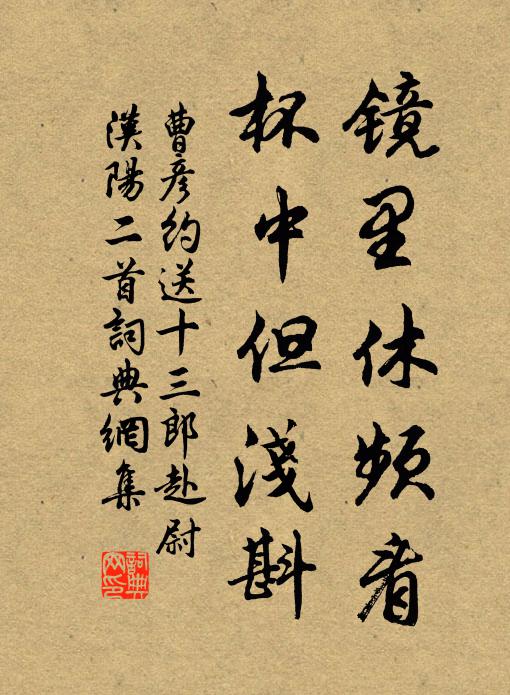 镜里休频看
杯中但淺斟
曹彦約送十三郎赴尉
漢陽二首詞典網集
詞典网印